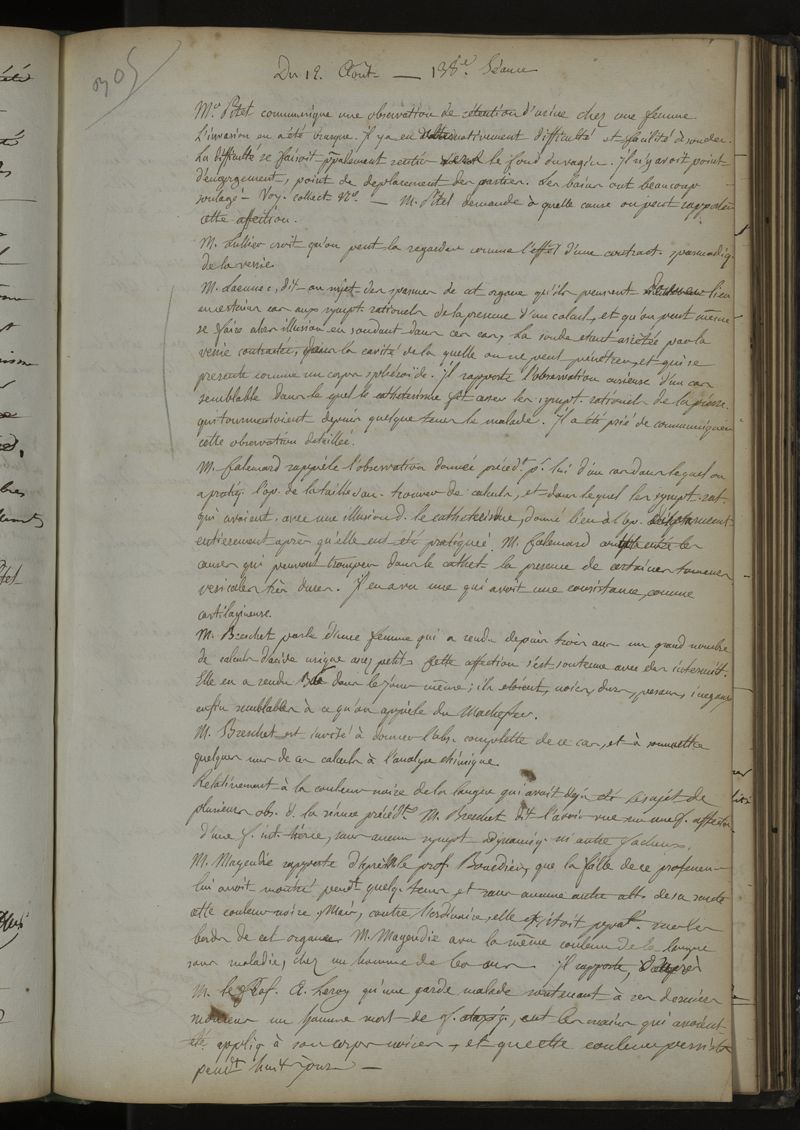 305
Du 12. Août — 138e. Séance
Mr Pitet communique une observation de rétention d'urine chez une femme.
L'invasion en a été brusque. Il y a eu alternativement difficulté et facilité à sonder.
La difficulté se faisoit ppalement sentir le fond du vagin. Il n'y avoit point
d'engorgement, point de déplacement des parties. Les bains ont beaucoup
soulagé — Voy. collect No. — M. Pitet demande à quelle cause on peut rapporter
cette affection.
M. Lullier croit qu'on peut la regarder comme l'effet d'une contract. spasmodiq.
de la vessie
M. Laennec, dit au sujet des spasmes de cet organe qu'ils peuvent lieu
en certains cas aux sympt. rationels de la presence d'un calcul, et qu'on peut même
se faire alors illusion en sondant dans ces cas, la sonde etant arrêtée par la
vessie contractée, dans la cavité de la quelle on ne peut pénétrer, et qui se
presente comme un corps sphéroïde. Il rapporte l'observation curieuse d'un cas
semblable dans le quel le cathéterisme fit cesser les sympt. rationels de la pierre
qui tourmentoient depuis quelque tems le malade. Il a été prié de communiquer
cette observation détaillée.
M. Jalemard rappéle l'observation donnée précédt. pr. lui d'un cas dans lequel on
a pratiq. l'op. de la taille san trouver de calculs, et dans lequel les sympt. rat.
qui avoient, avec une illusion d. le cathéterisme, donné lieu à l'op.
entierement après qu'elle eut été pratiquée. M. Jalemard les
causes qui peuvent tromper dans le cathet. la presence de certaines tumeurs
vesicales très dures. Il en a vu une qui avoit une consistance comme
cartilagineuse.
M. Breschet parle d'une femme qui a rendu depuis trois ans un grand nombre
de calculs d'acide urique assez petits. Cette affection s'est soutenue avec des intermitt.
Elle en a rendu dans le jour même; ils etoient, noirs, durs, pesans, inegaux
enfin semblables à ce qu'on appéle du Machefer.
M. Breschet est invité à donner l'obs. complette de ce cas, et à soumettre
quelques uns de ces calculs à l'analyse chimique.
Relativement à la couleur noire de la langue qui avait deja été le sujet de
plusieurs obs. d. la séance précédte M. Breschet dit l'avoir vue en une f. affectée
d'une f. int. tierce, sans aucun sympt. adynamiq. ni autre facheux.
M. Mayendie rapporte d'après le prof. Bourdier, que la fille de ce professeur
lui avoit montré pendt quelq. tems et sans aucune autre alt. de sa santé
cette couleur noire. Mais, contre l'ordinaire, elle existoit sur les
bords de cet organe. M. Mayendie a vu la même couleur de la langue
sans maladie, chez un homme de 60 ans. Il rapporte, d'après
M. le Prof. A. Leroy qu'une garde malade soutenant à ses derniers
momens un homme mort de f. , eut les mains qui avoient
été appliq. à son corps noires, et que cette couleur persista
pendt huit jours —